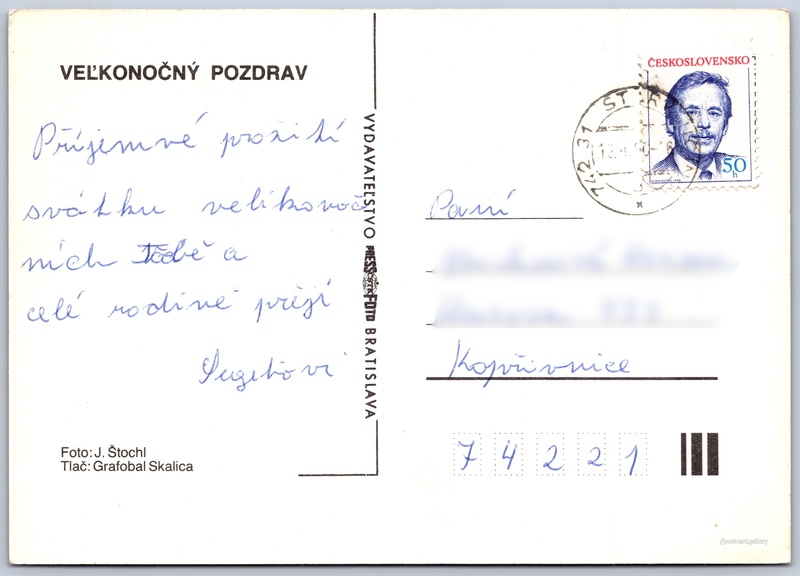 VEĽKONOČNÝ POZDRAV
Příjemné prožití
svátku velikonoč
ních Tobě a
celé rodině přejí
Foto: J. Štochl
Tlač: Grafobal Skalica
VYDAVATEĽSTVO PRESSFOTO BRATISLAVA
ČESKOSLOVENSKO
50
h
742 31
Paní
Kopřivnice
74221
//postcard.gallery